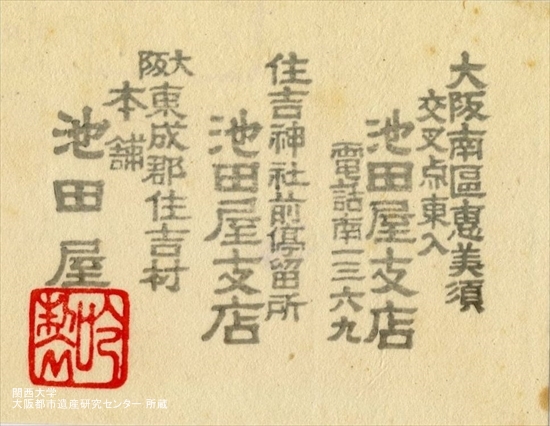 大阪南區恵美須
交叉点東入
池田屋支店
電話南一三六九
住吉神社前停留所
池田屋支店
大阪東成郡住吉村
本舗
池田屋
関西大学
大阪都市遺産研究センター 所蔵